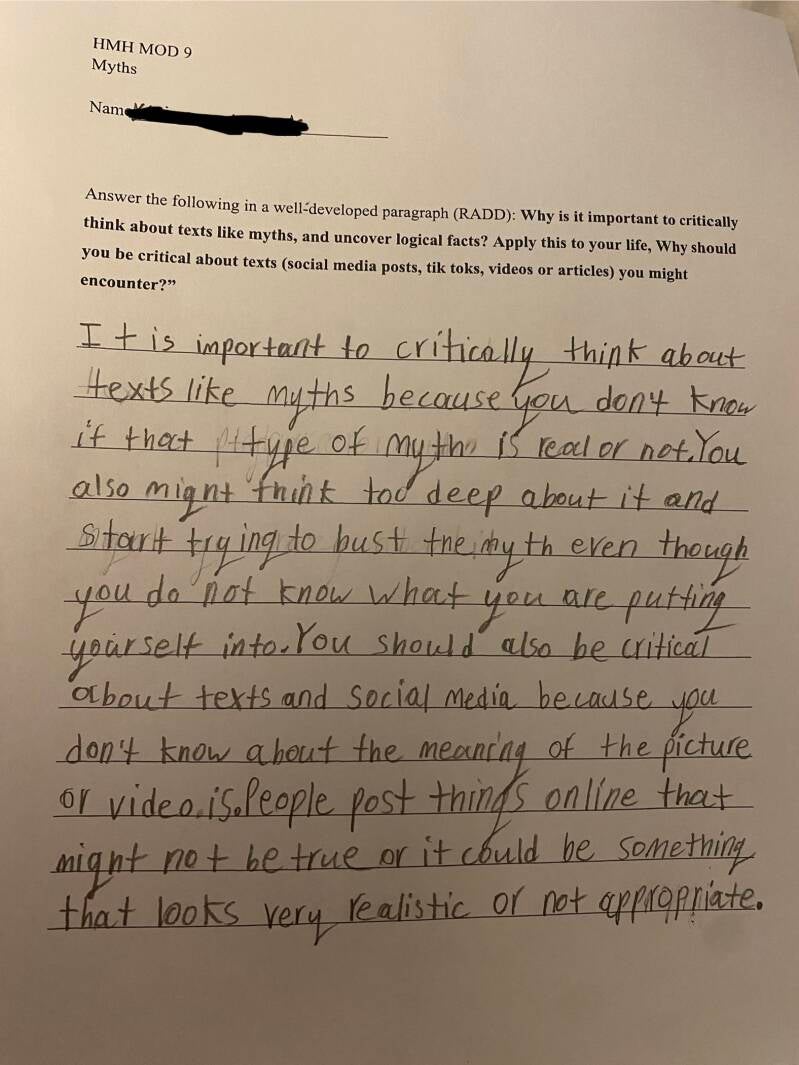 HMH MOD 9
Myths
Nam
Answer the following in a well-developed paragraph (RADD): Why is it important to critically
think about texts like myths, and uncover logical facts? Apply this to your life, Why should
you be critical about texts (social media posts, tik toks, videos or articles) you might
encounter?”
It is important to critically think about
texts like myths because you don't know
if that type of myth is real or not. You
also might think too deep about it and
start trying to bust the myth even though
you do not know what you are putting
yourself into. You should also be critical
about texts and social media because you
don't know about the meaning of the picture
or video is. People post things online that
might not be true or it could be something
that looks very realistic or not appropriate.